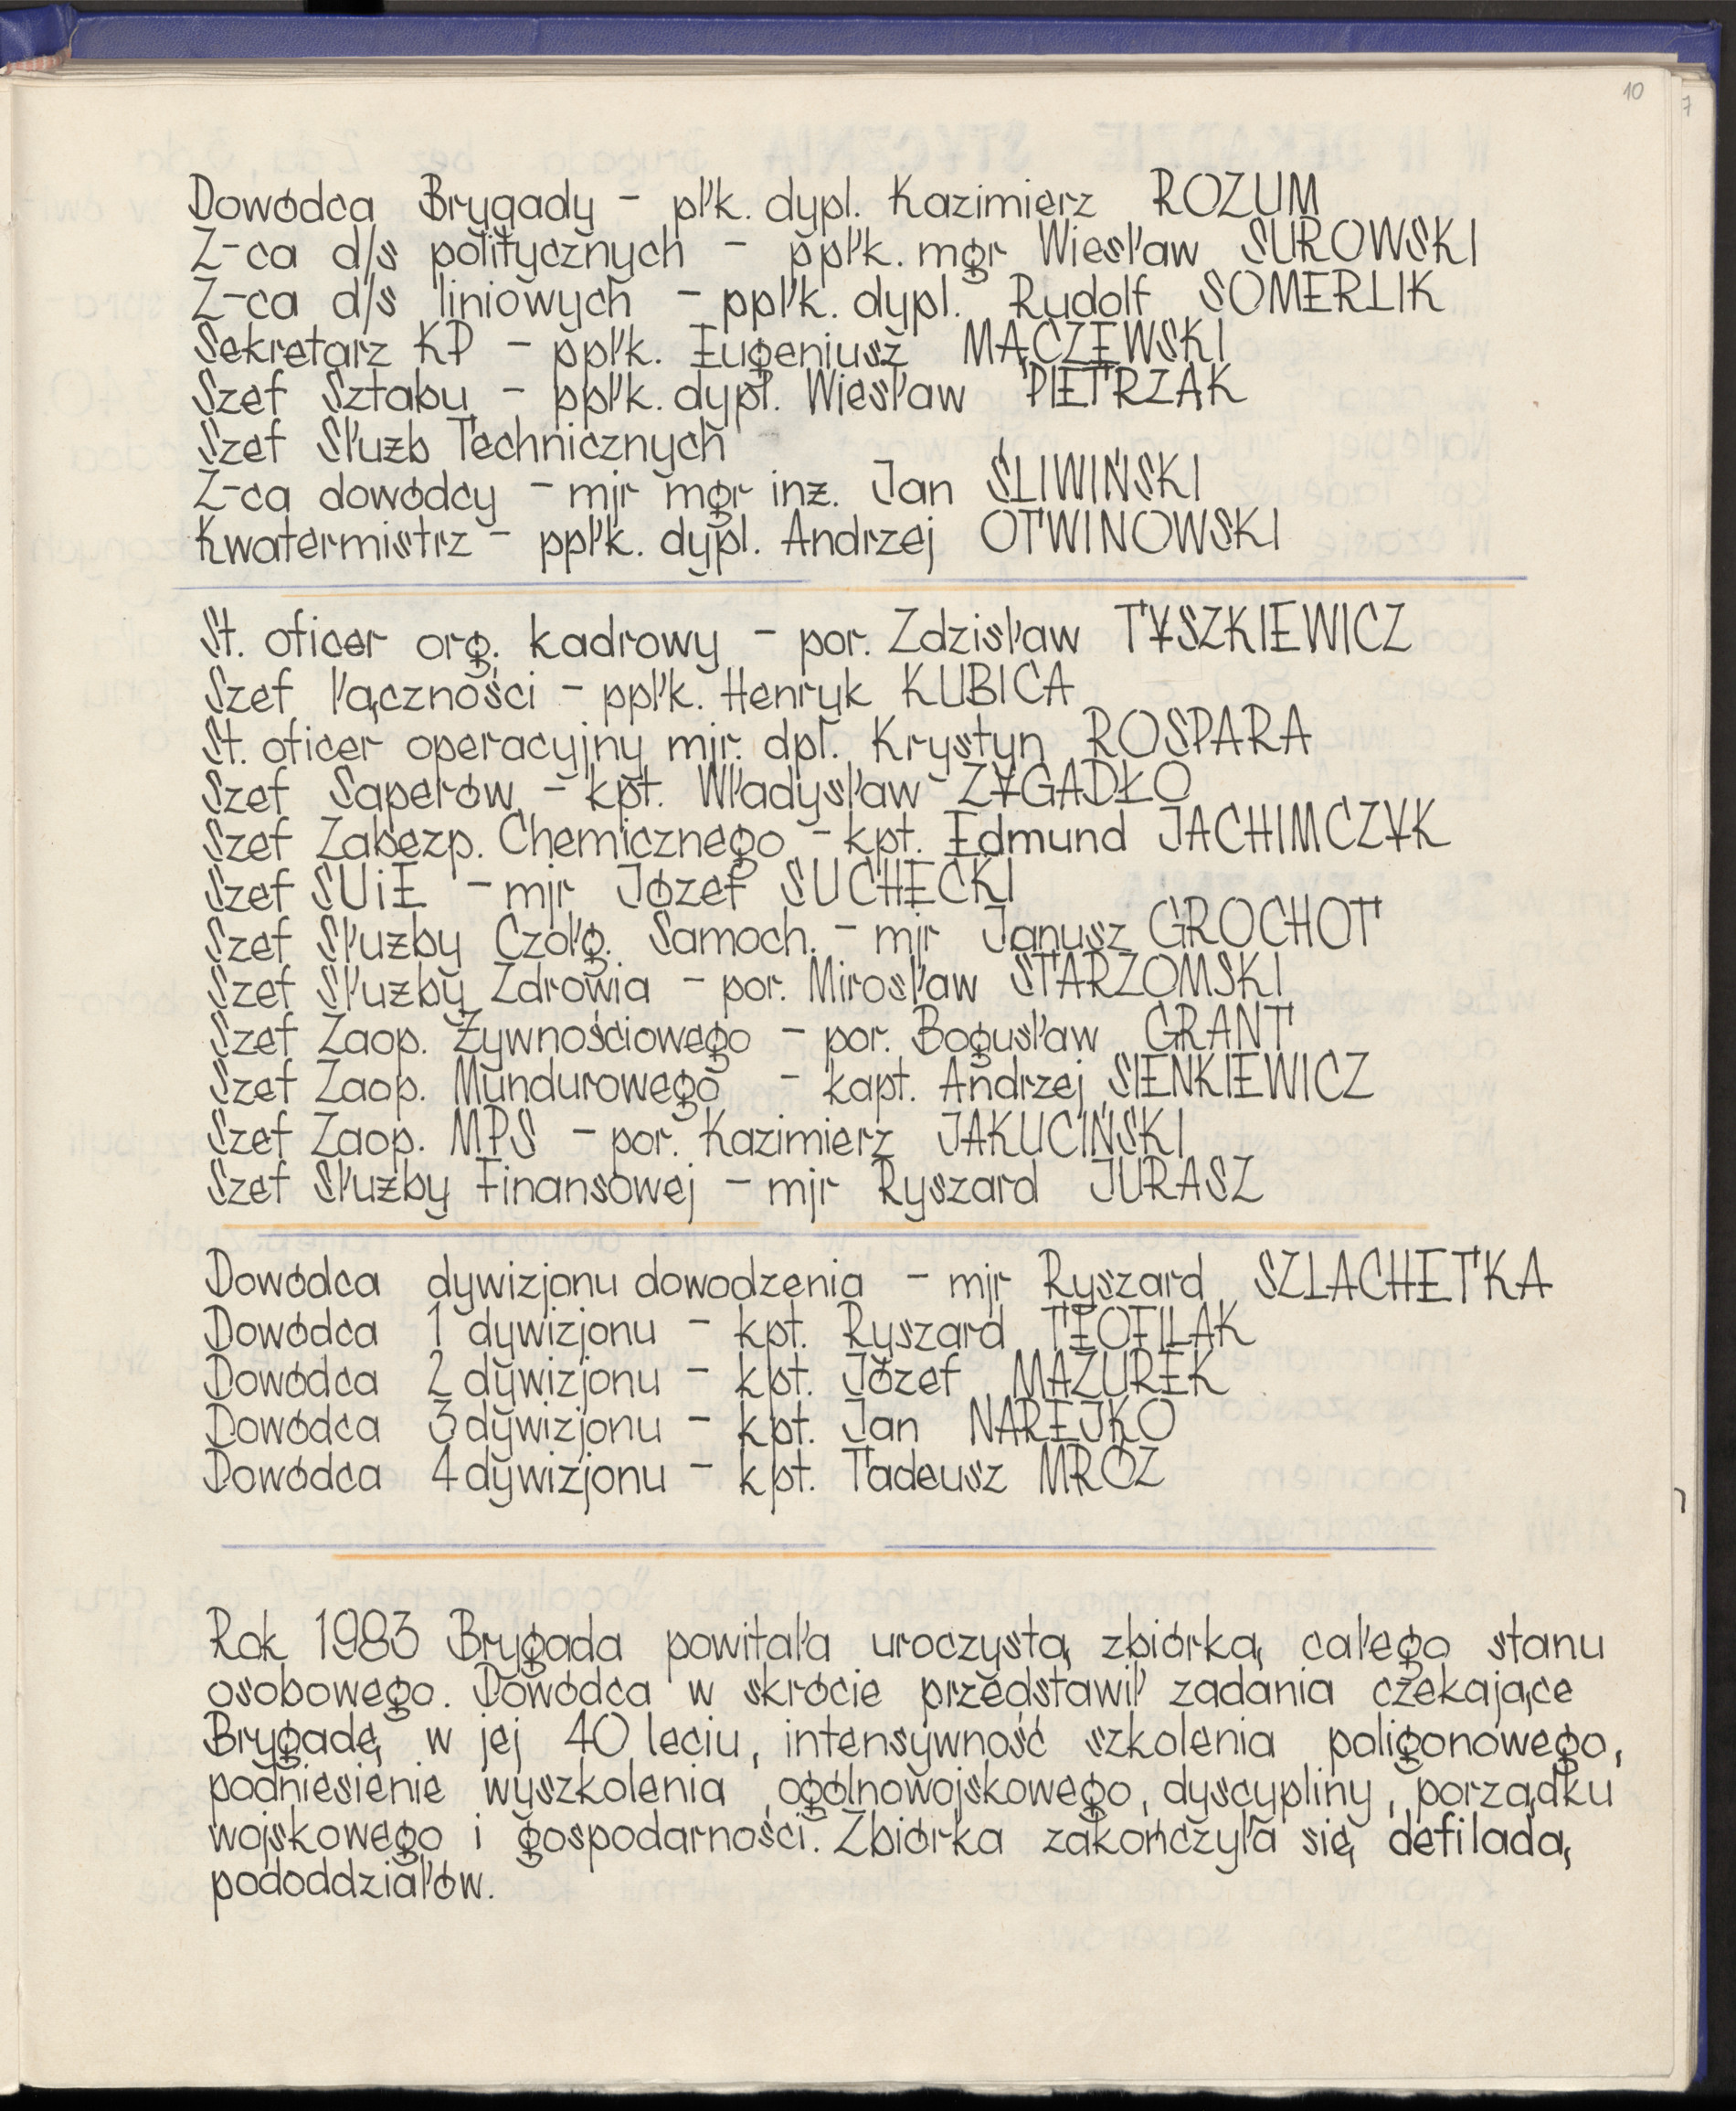 10
Dowódca Brygady - płk. dypl. Kazimierz ROZUM
Z-ca d/s politycznych - ppłk. mgr Wiesław SUROWSKI
Z-ca d/s liniowych - ppłk. dypl. Rudolf SOMERLIK
Sekretarz KP - ppłk. Eugeniusz MĄCZEWSKI
Szef Sztabu - ppłk. dypl. Wiesław PIETRZAK
Szef Służb Technicznych
Z-ca dowódcy - mjr mgr inż. Jan ŚLIWIŃSKI
Kwatermistrz - ppłk. dypl. Andrzej OTWINOWSKI
St. oficer org. kadrowy - por. Zdzisław TYSZKIEWICZ
Szef łączności - ppłk. Henryk KUBICA
St. oficer operacyjny mjr. dpl. Krystyn ROSPARA
Szef Saperów - kpt. Władysław ZYGADŁO
Szef Zabezp. Chemicznego - kpt. Edmund JACHIMCZYK
Szef SUiE - mjr Józef SUCHECKI
Szef Służby Czołg. Samoch. - mjr Janusz GROCHOT
Szef Służby Zdrowia - por. Mirosław STARZOMSKI
Szef Zaop. Żywnościowego - por. Bogusław GRANT
Szef Zaop. Mundurowego - kapt. Andrzej SIENKIEWICZ
Szef Zaop. MPS - por. Kazimierz JAKUCIŃSKI
Szef Służby Finansowej - mjr Ryszard JURASZ
Dowódca dywizjonu dowodzenia - mjr Ryszard SZLACHETKA
Dowódca 1 dywizjonu - kpt. Ryszard TEOFILAK
Dowódca 2 dywizjonu - kpt. Józef MAZUREK
Dowódca 3 dywizjonu - kpt. Jan NAREJKO
Dowódca 4 dywizjonu - kpt. Tadeusz MRÓZ
Rok 1983 Brygada powitała uroczystą zbiórką całego stanu
osobowego. Dowódca w skrócie przedstawił zadania czekające
Brygadę w jej 40 leciu, intensywność szkolenia poligonowego,
podniesienie wyszkolenia ogólnowojskowego, dyscypliny, porządku
wojskowego i gospodarności. Zbiórka zakończyła się defiladą
pododdziałów.